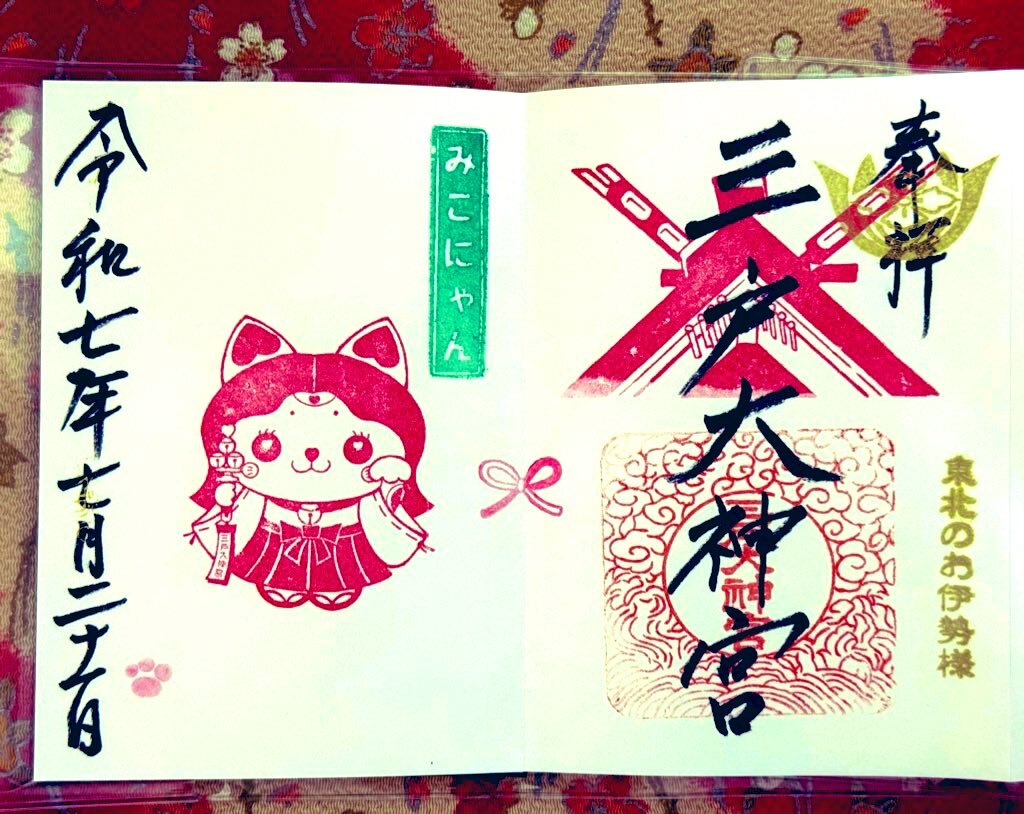 奉拝
東北のお伊勢様
三戸大神宮
三戸大神宮
みこにゃん
三
三戸大神宮
令和七年七月二十六日